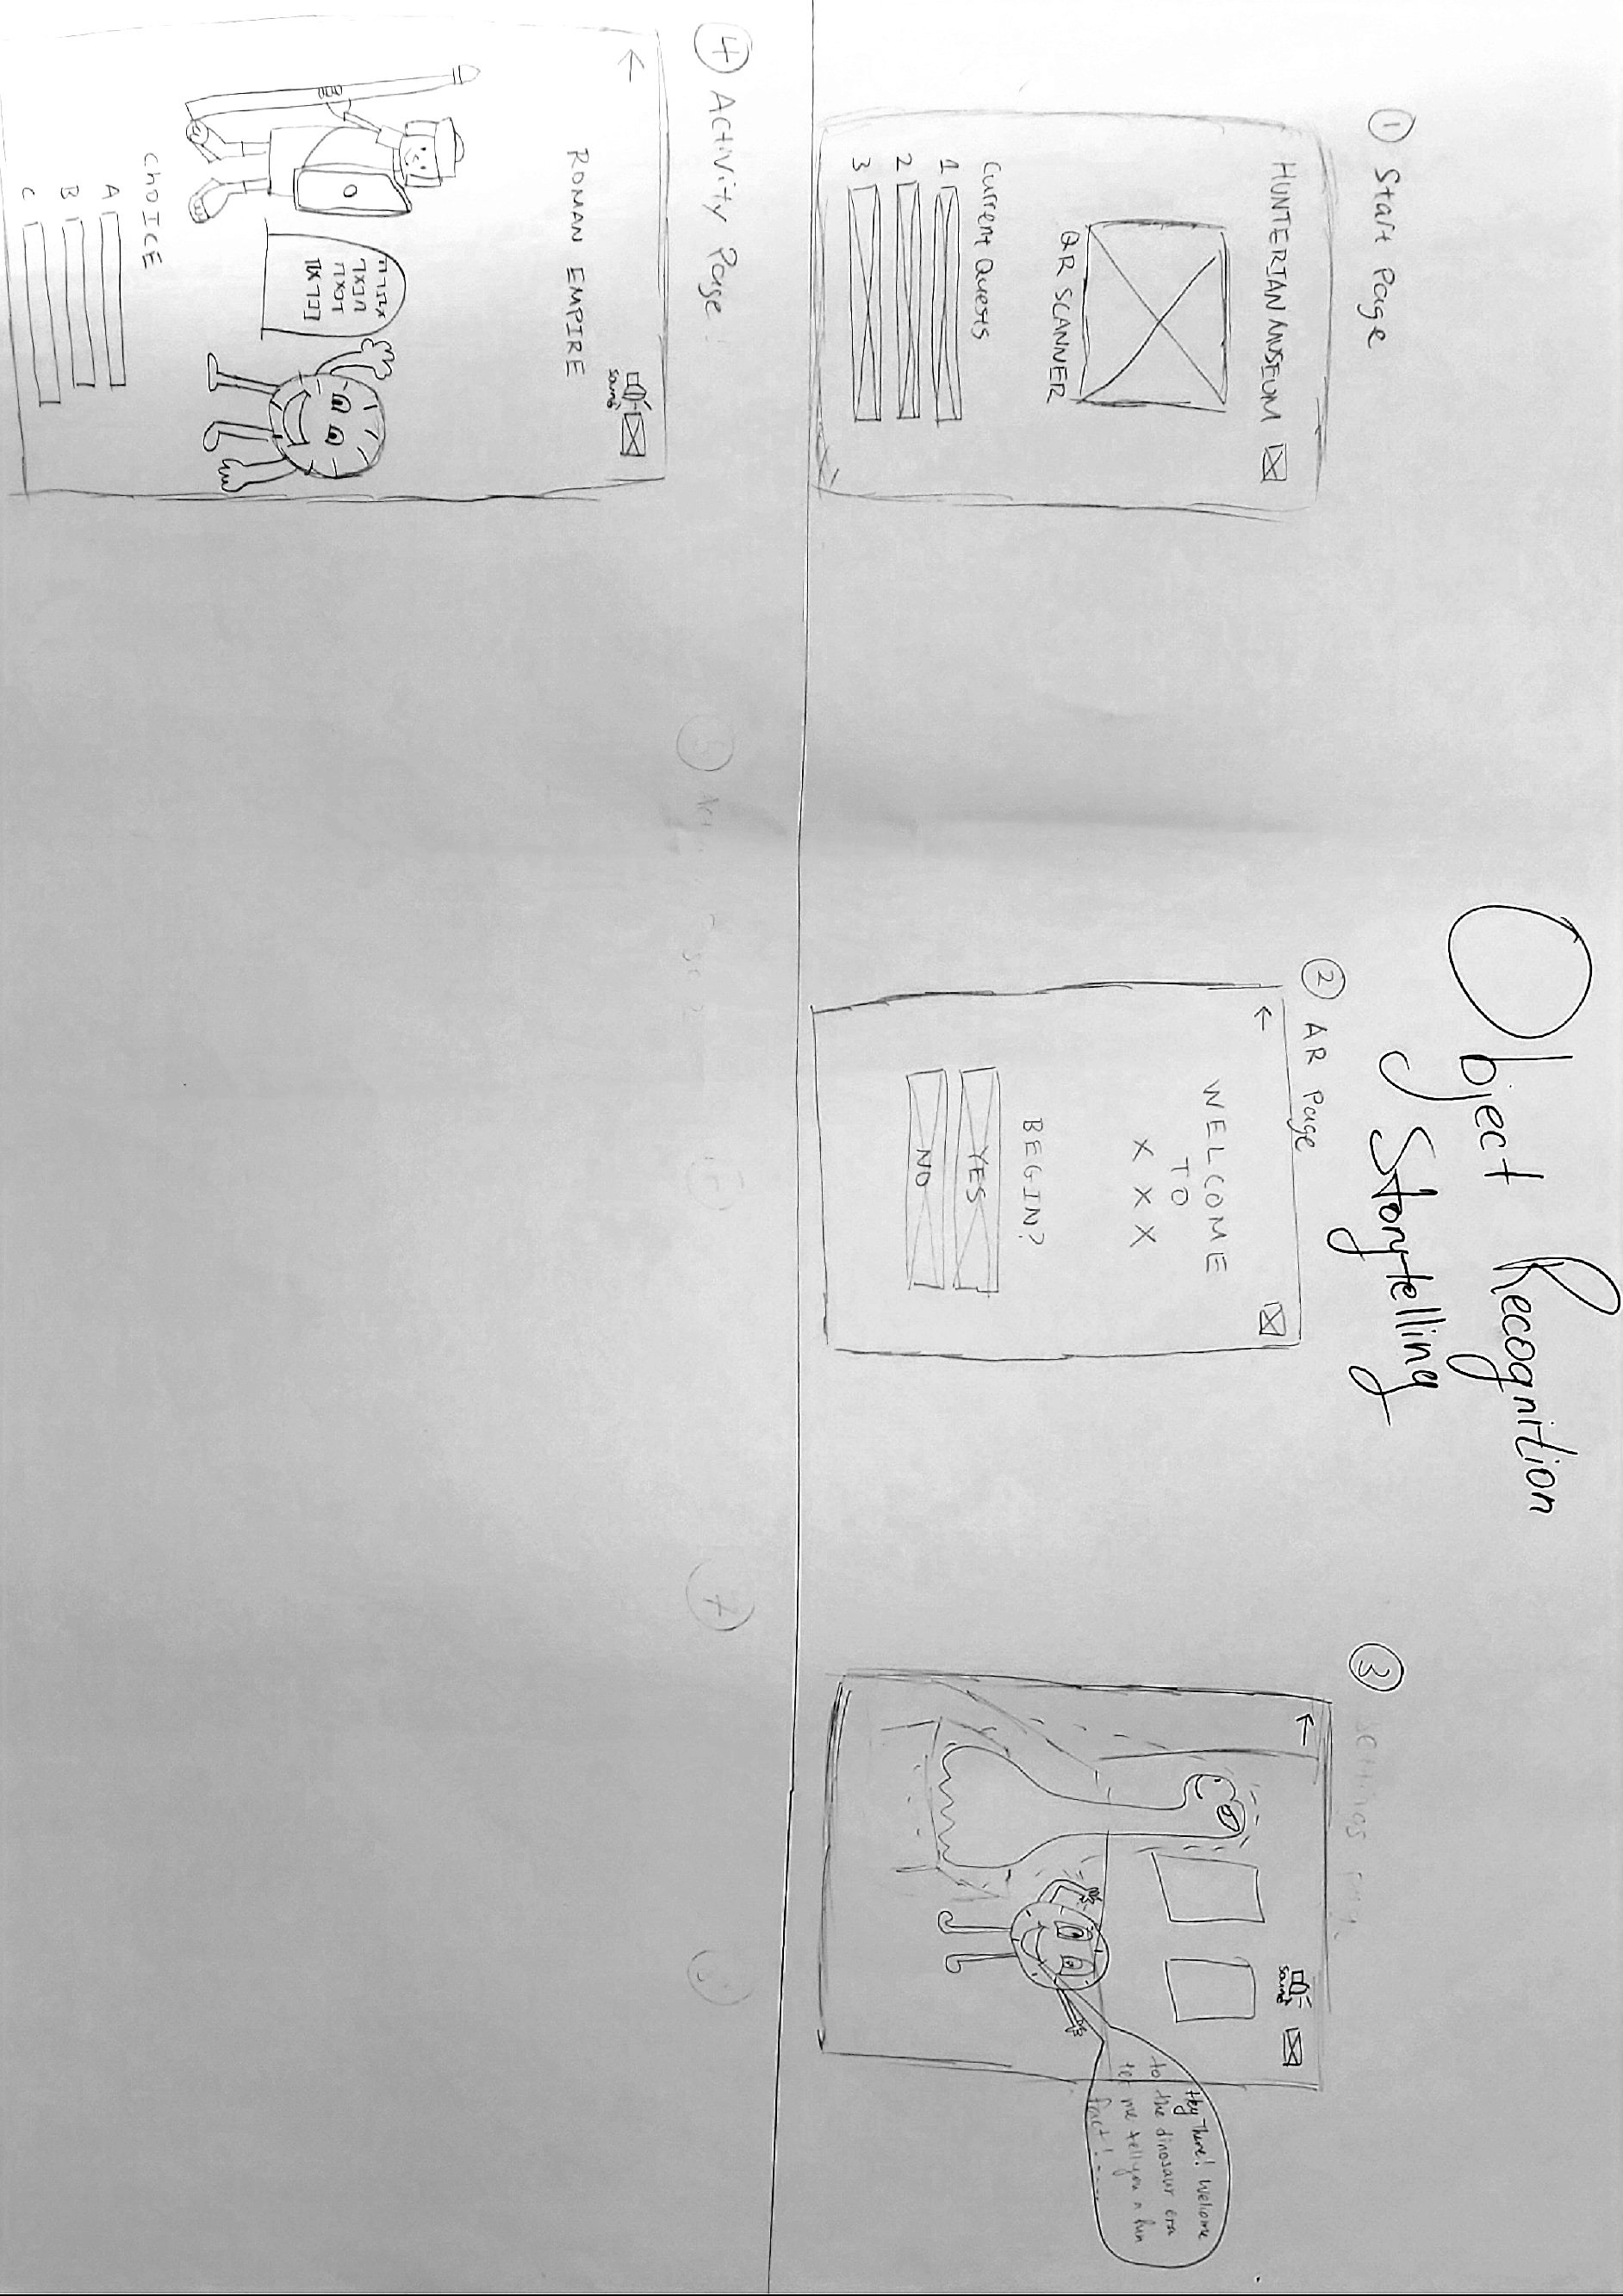 Object Recognition
Storytelling
1 Start Page
HUNTERIAN MUSEUM
QR SCANNER
Current Quests
1
2
3
2 AR Page
←
WELCOME
TO
X X X
BEGIN?
YES
NO
3 Settings
←
sound
Hey There! Welcome
to the dinosaur era
let me tell you a fun
fact! ....
4 Activity Page
←
sound
ROMAN EMPIRE
ChOICE
A
B
C
7